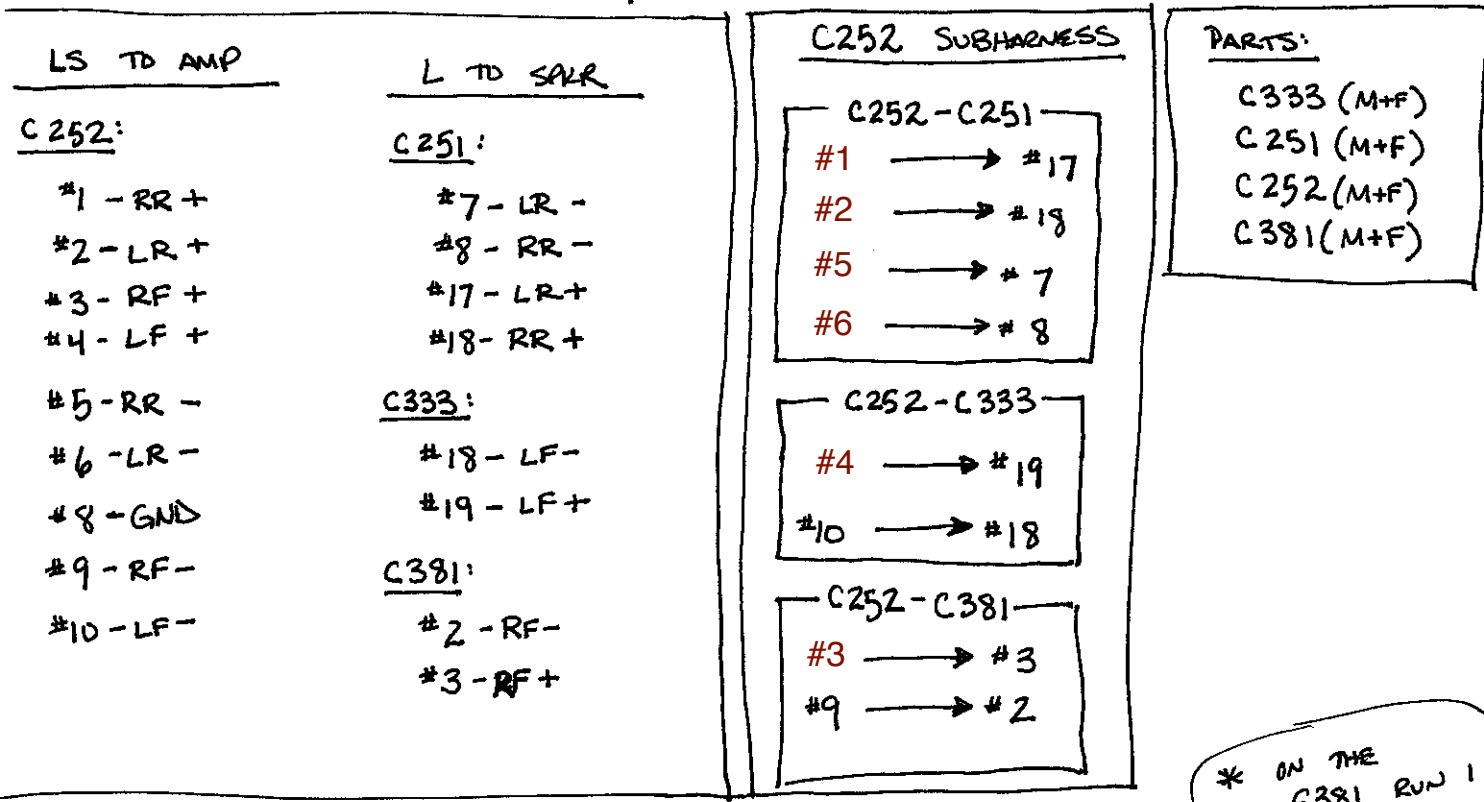 LS TO AMP
C252:
#1 - RR +
#2 - LR +
#3 - RF +
#4 - LF +
#5 - RR -
#6 - LR -
#8 - GND
#9 - RF -
#10 - LF -
L TO SPKR
C251:
#7 - LR -
#8 - RR -
#17 - LR +
#18 - RR +
C333:
#18 - LF -
#19 - LF +
C381:
#2 - RF -
#3 - RF +
C252 SUBHARNESS
C252 - C251
#1 → #17
#2 → #18
#5 → #7
#6 → #8
C252 - C333
#4 → #19
#10 → #18
C252 - C381
#3 → #3
#9 → #2
PARTS:
C333 (M+F)
C251 (M+F)
C252 (M+F)
C381 (M+F)
* ON THE
C381 RUN 1